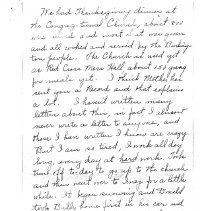 We had Thanksgiving dinner at
the Congregational Church, about 500
was and most it was given
and all cooked and served by the
tion people. The Church is used yet
as Red Cross Mess Hall about 150 gang
for meals yet. I think Mother has
sent you a Record and that explains
a lot. I haven't written many
letters about this, in fact I almost
never write a letter to anyone, and
those I have written I know are crazy
But I am so tired, I work all day
long, every day at hard work. Took
time off to-day to go up to the church
and then went over to for a little
while. It began snowing and Donald
took Billy home first in his car and